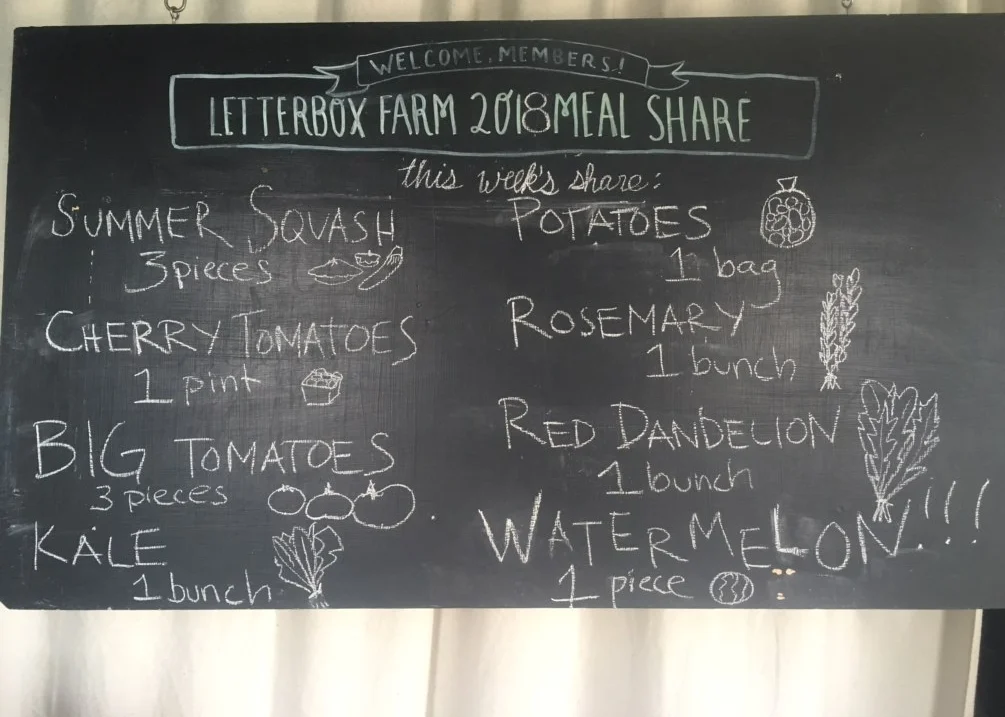 WELCOME, MEMBERS!
LETTERBOX FARM 2018 MEAL SHARE
this week's share:
SUMMER SQUASH
3 pieces
CHERRY TOMATOES
1 pint
BIG TOMATOES
3 pieces
KALE
1 bunch
POTATOES
1 bag
ROSEMARY
1 bunch
RED DANDELION
1 bunch
WATERMELON!!!
1 piece